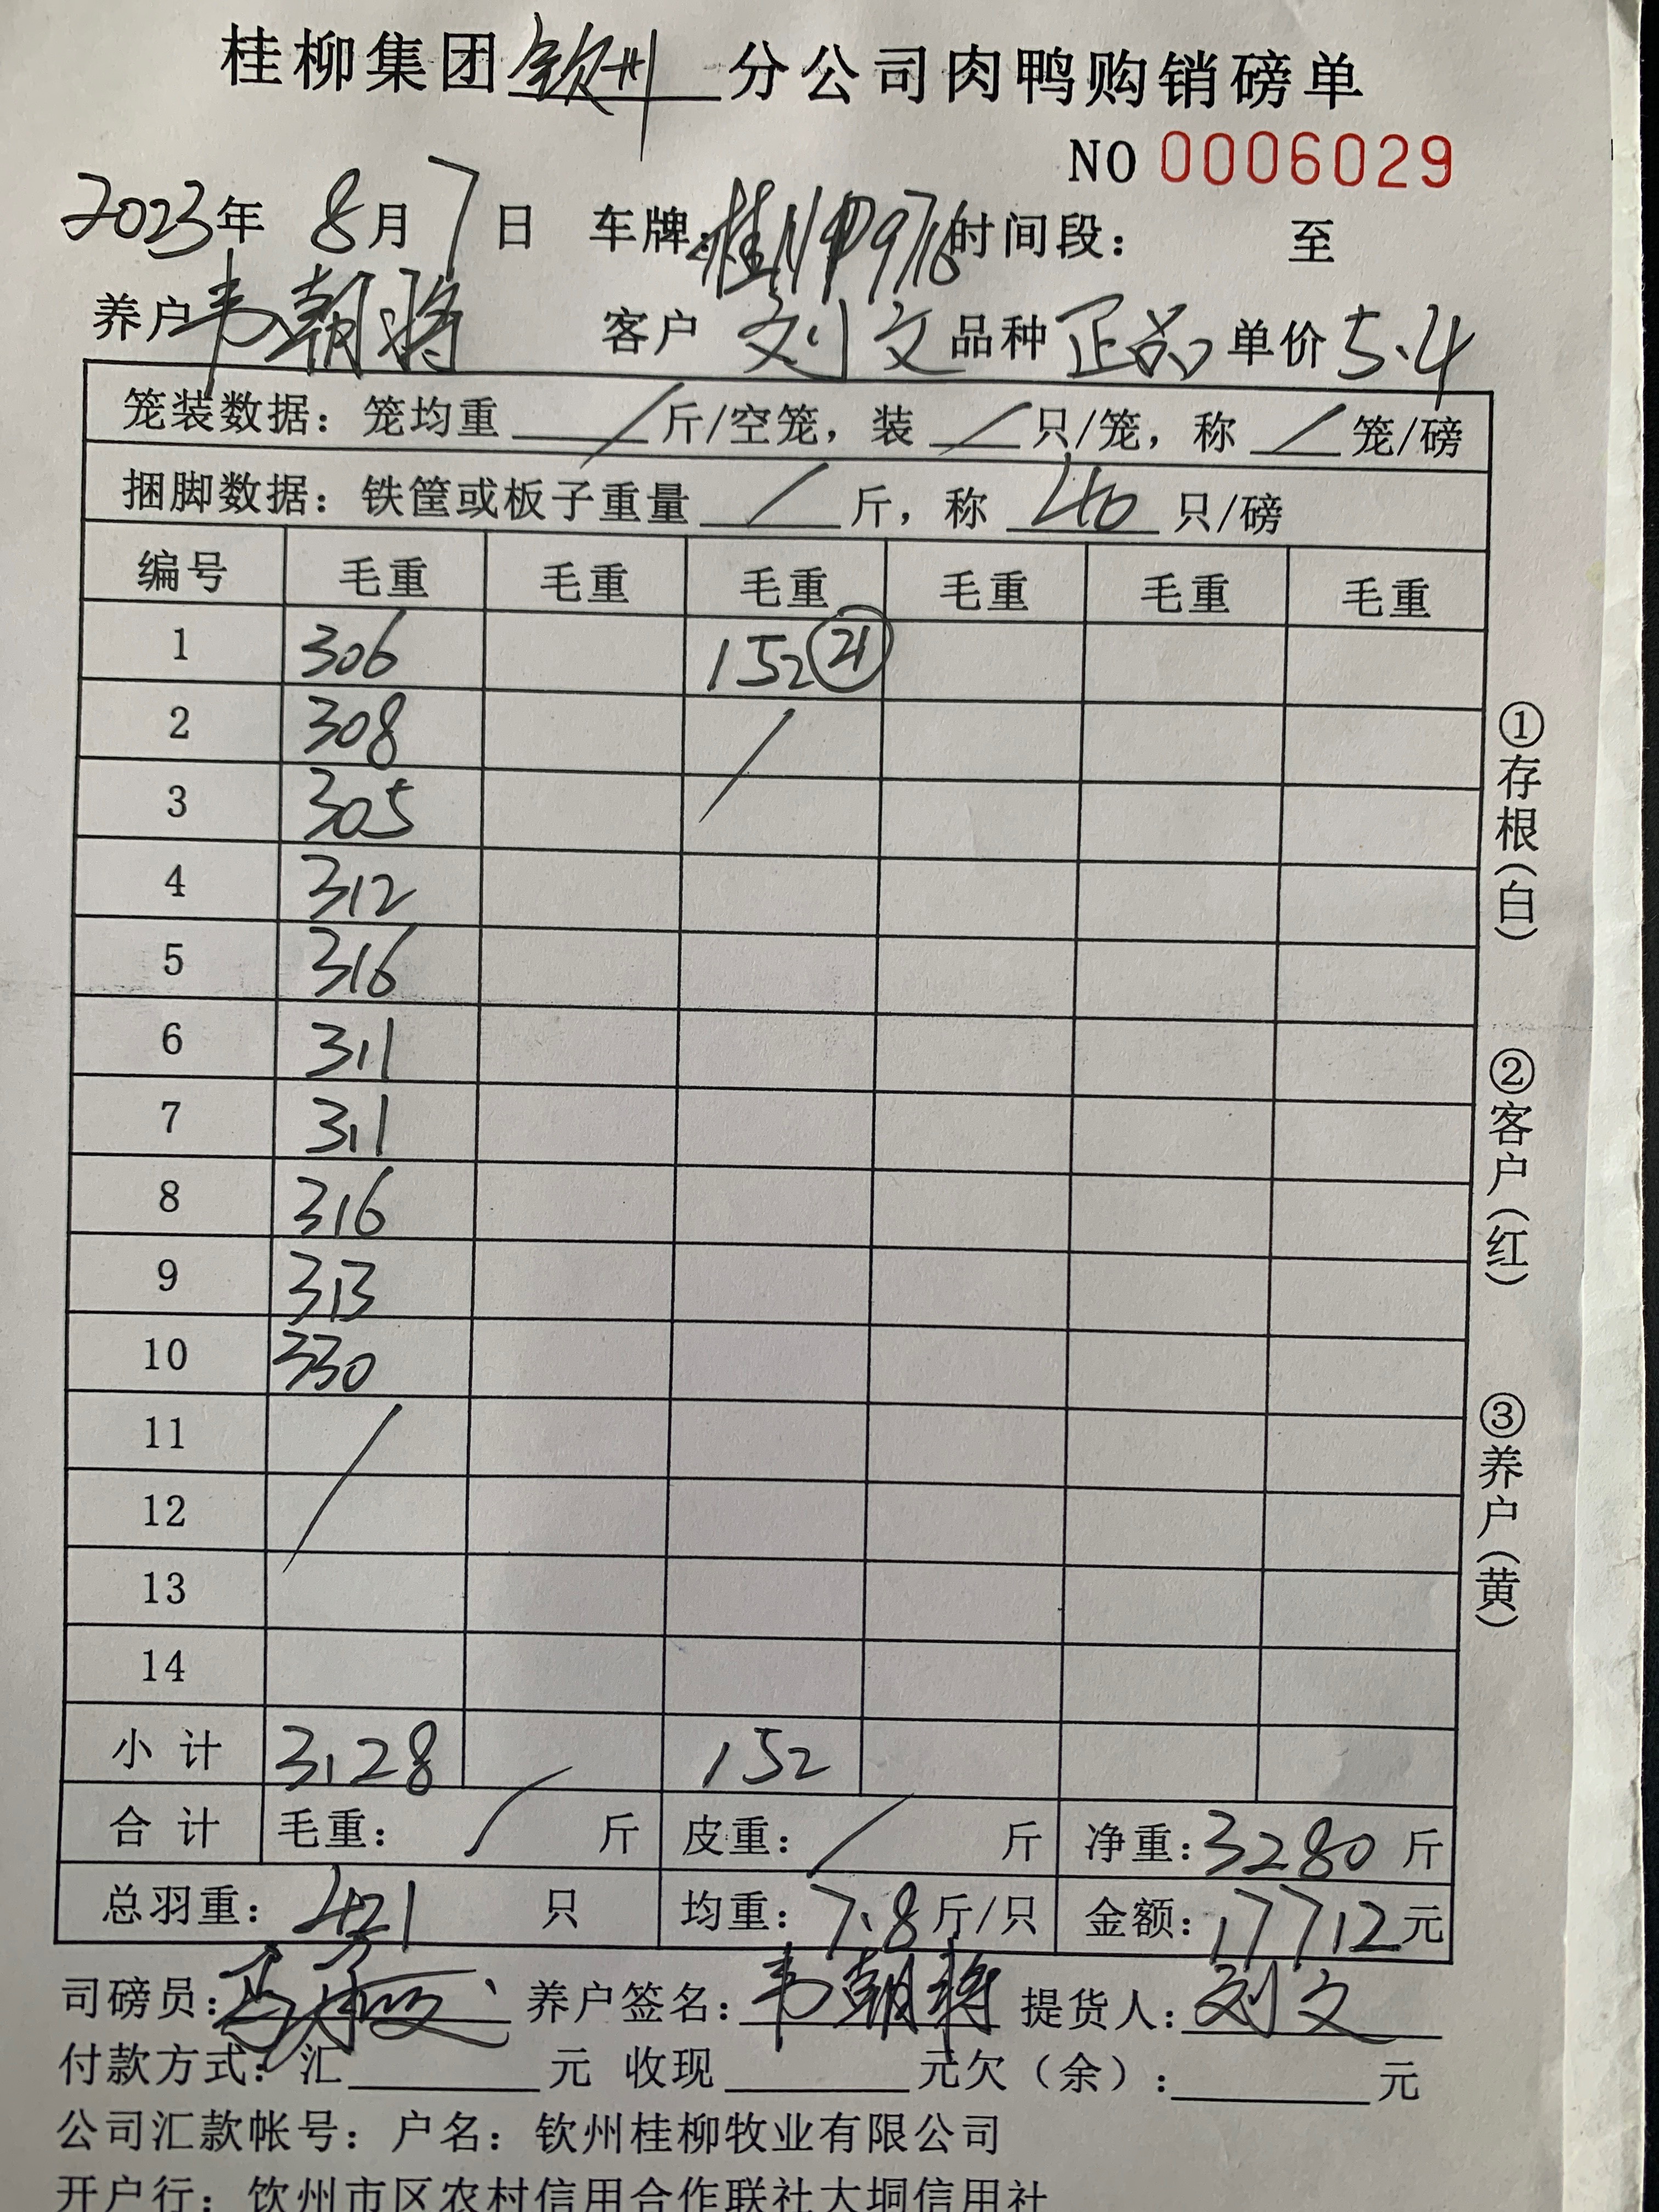 桂柳集团钦州分公司肉鸭购销磅单
NO 0006029
2023年 8月7日 车牌：桂NP9716 时间段： 至
养户 韦朝将 客户 刘文 品种 正品 单价 5.4
笼装数据：笼均重 / 斤/空笼，装 / 只/笼，称 / 笼/磅
捆脚数据：铁筐或板子重量 / 斤，称 40 只/磅
编号 毛重 毛重 毛重 毛重 毛重 毛重
1 306 152 21
2 308 /
3 305
4 312
5 316
6 311
7 311
8 316
9 313
10 330
11 /
12
13
14
小计 3128 152
合计 毛重： / 斤 皮重： / 斤 净重：3280 斤
总羽重：421 只 均重：7.8 斤/只 金额：17712元
司磅员： 养户签名：韦朝将 提货人：刘文
付款方式：汇 元 收现 元欠（余）： 元
公司汇款帐号：户名：钦州桂柳牧业有限公司
开户行：钦州市区农村信用合作联社大垌信用社
①存根（白）
②客户（红）
③养户（黄）